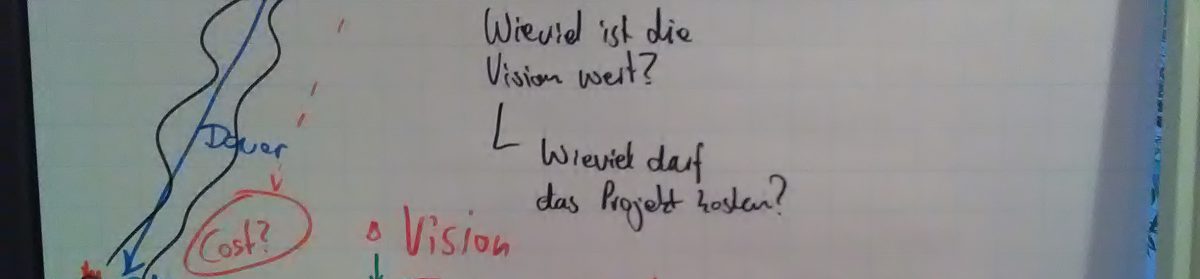 Wieviel ist die
Vision wert?
Wieviel darf
das Projekt kosten?
Dauer
Cost?
Vision